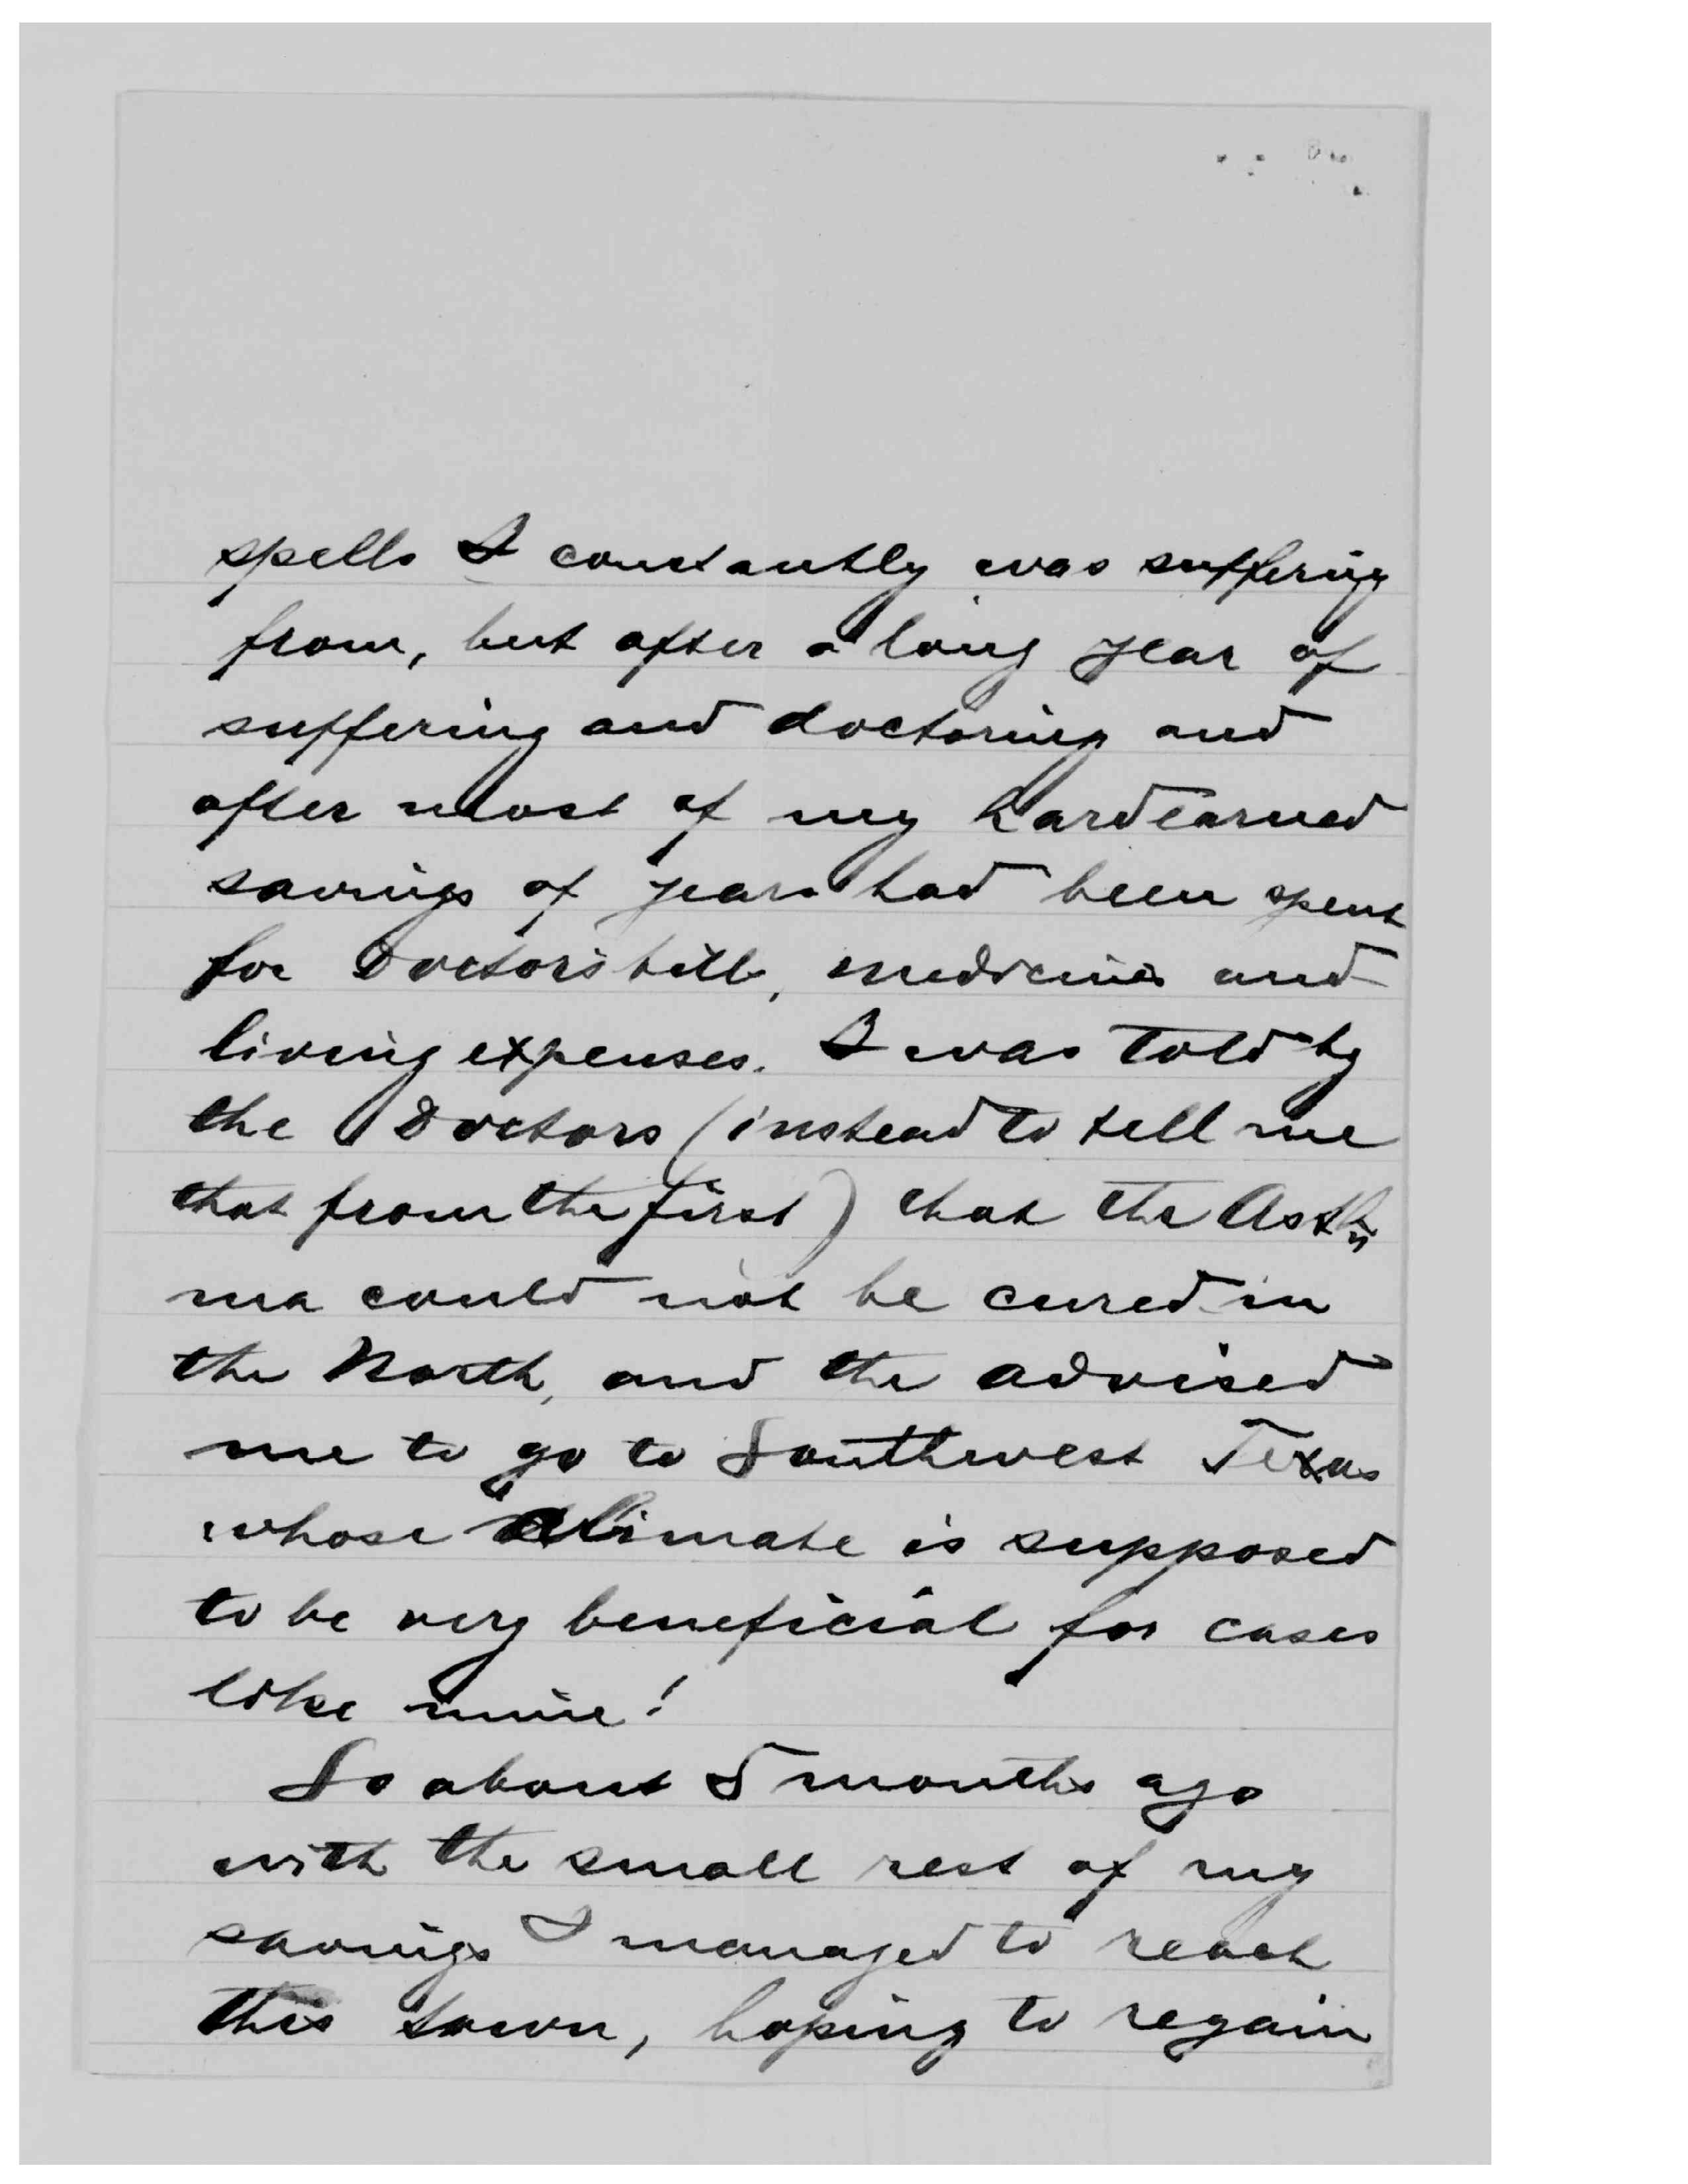 spells I constantly was suffering
from, but after a long year of
suffering and doctoring and
after most of my hardearned
savings of years had been spent
for Doctor's bills, medicines and
living expenses. I was told by
the Doctors (instead to tell me
that from the first) that the Asth=
ma could not be cured in
the North, and the advised
me to go to Southwest Texas
whose climate is supposed
to be very beneficial for cases
like mine!
So about 5 months ago
with the small rest of my
savings I managed to reach
this town, hoping to regain